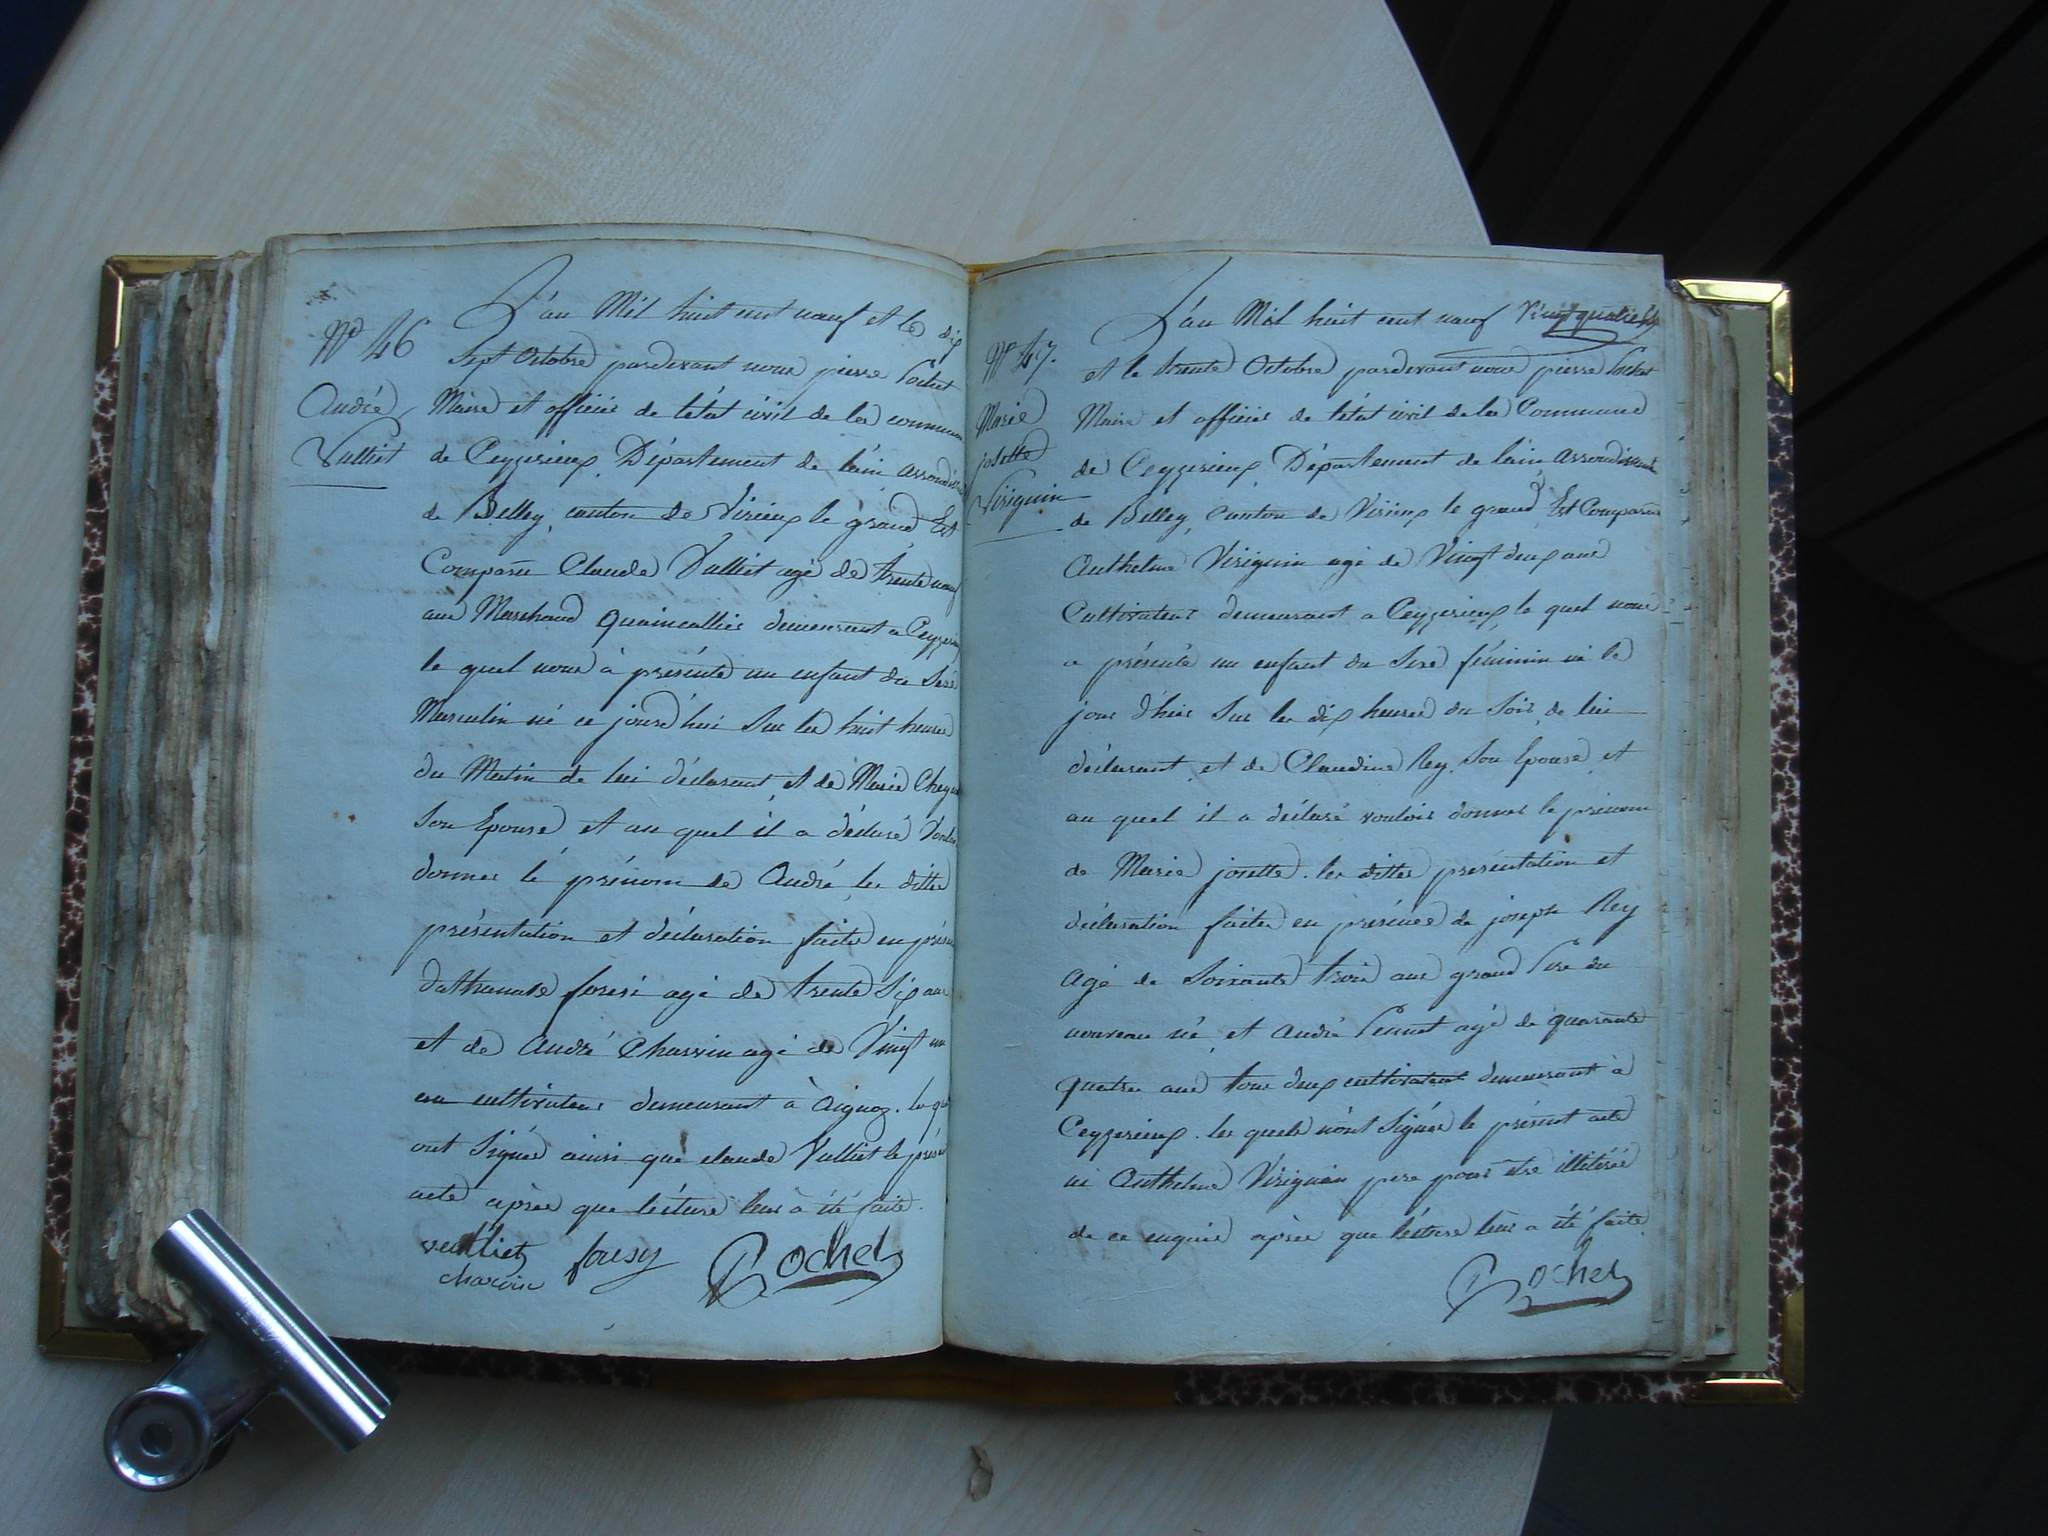 Nº 46
André
Vulliet
L'an Mil huit cent neuf et le dix
Sept Octobre pardevant nous pierre Pochet
Maire et officier de l'état civil de la commune
de Ceyzerieux, Département de l'ain arrondis
de Belley, canton de Virieux le grand Est
Comparu Claude Vulliet agé de trente neuf
ans Marchand Quaincallier demeurant a Ceyzerieu
le quel nous à présenté un enfant du Sexe
Masculin né ce jourd'hui Sur les huit heures
du Matin de lui déclarant et de Marie
Son Epouse, et au quel il a déclaré Vouloir
donner lé prénom de André les dittes
présentation et déclaration faite en présen
d'athanase foresi agé de trente Six ans
et de André Charvin agé de Vingt un
an cultivateur demeurant à Aignoz. les qu
ont Signés ainsi que claude Vulliet le présen
acte après que lécture leur à été faite.
vulliet
charvin
Pochet
Nº 47.
Marie
josette
Viriguin
L'an Mil huit cent neuf
et le trente Octobre pardevant nous pierre Pochet
Maire et officier de l'état civil de la Commune
de Ceyzerieux, Département de l'ain arrondissent
de Belley, Canton de Virieux le grand Est Comparu
Anthelme Viriguin agé de Vingt deux ans
Cultivateur demeurant a Ceyzerieux le quel nous
a présenté un enfant du Sexe féminin né le
jour d'hier Sur les dix heures du Soir, de lui
déclarant et de Claudine Rey, Son Epouse, et
au quel il a déclaré vouloir donner le prénom
de Marie josette. les dittes présentation et
déclaration faites en présence de joseph Rey
Agé de Soixante trois ans grand Père du
nouveau né, et André Pennet agé de quarante
Quatre ans tous deux cultivateurs demeurant à
Ceyzerieux. les quels n'ont Signés le présent acte
ni Anthelme Viriguin pere pour être illitéré
de ce enquis après que lécture leur a été faite
Pochet